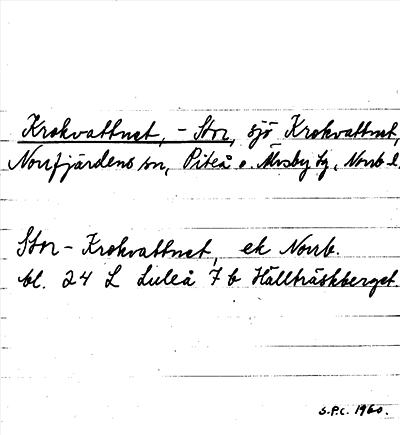 Krokvattnet, - Stor, sjö Krokvattnet,
Norrfjärdens sn, Piteå o. Älvsby tg, Norrb l.
Stor-Krokvattnet, ek Norrb.
bl. 24 L Luleå 7 b Hällträskberget.
S.P.C. 1960.